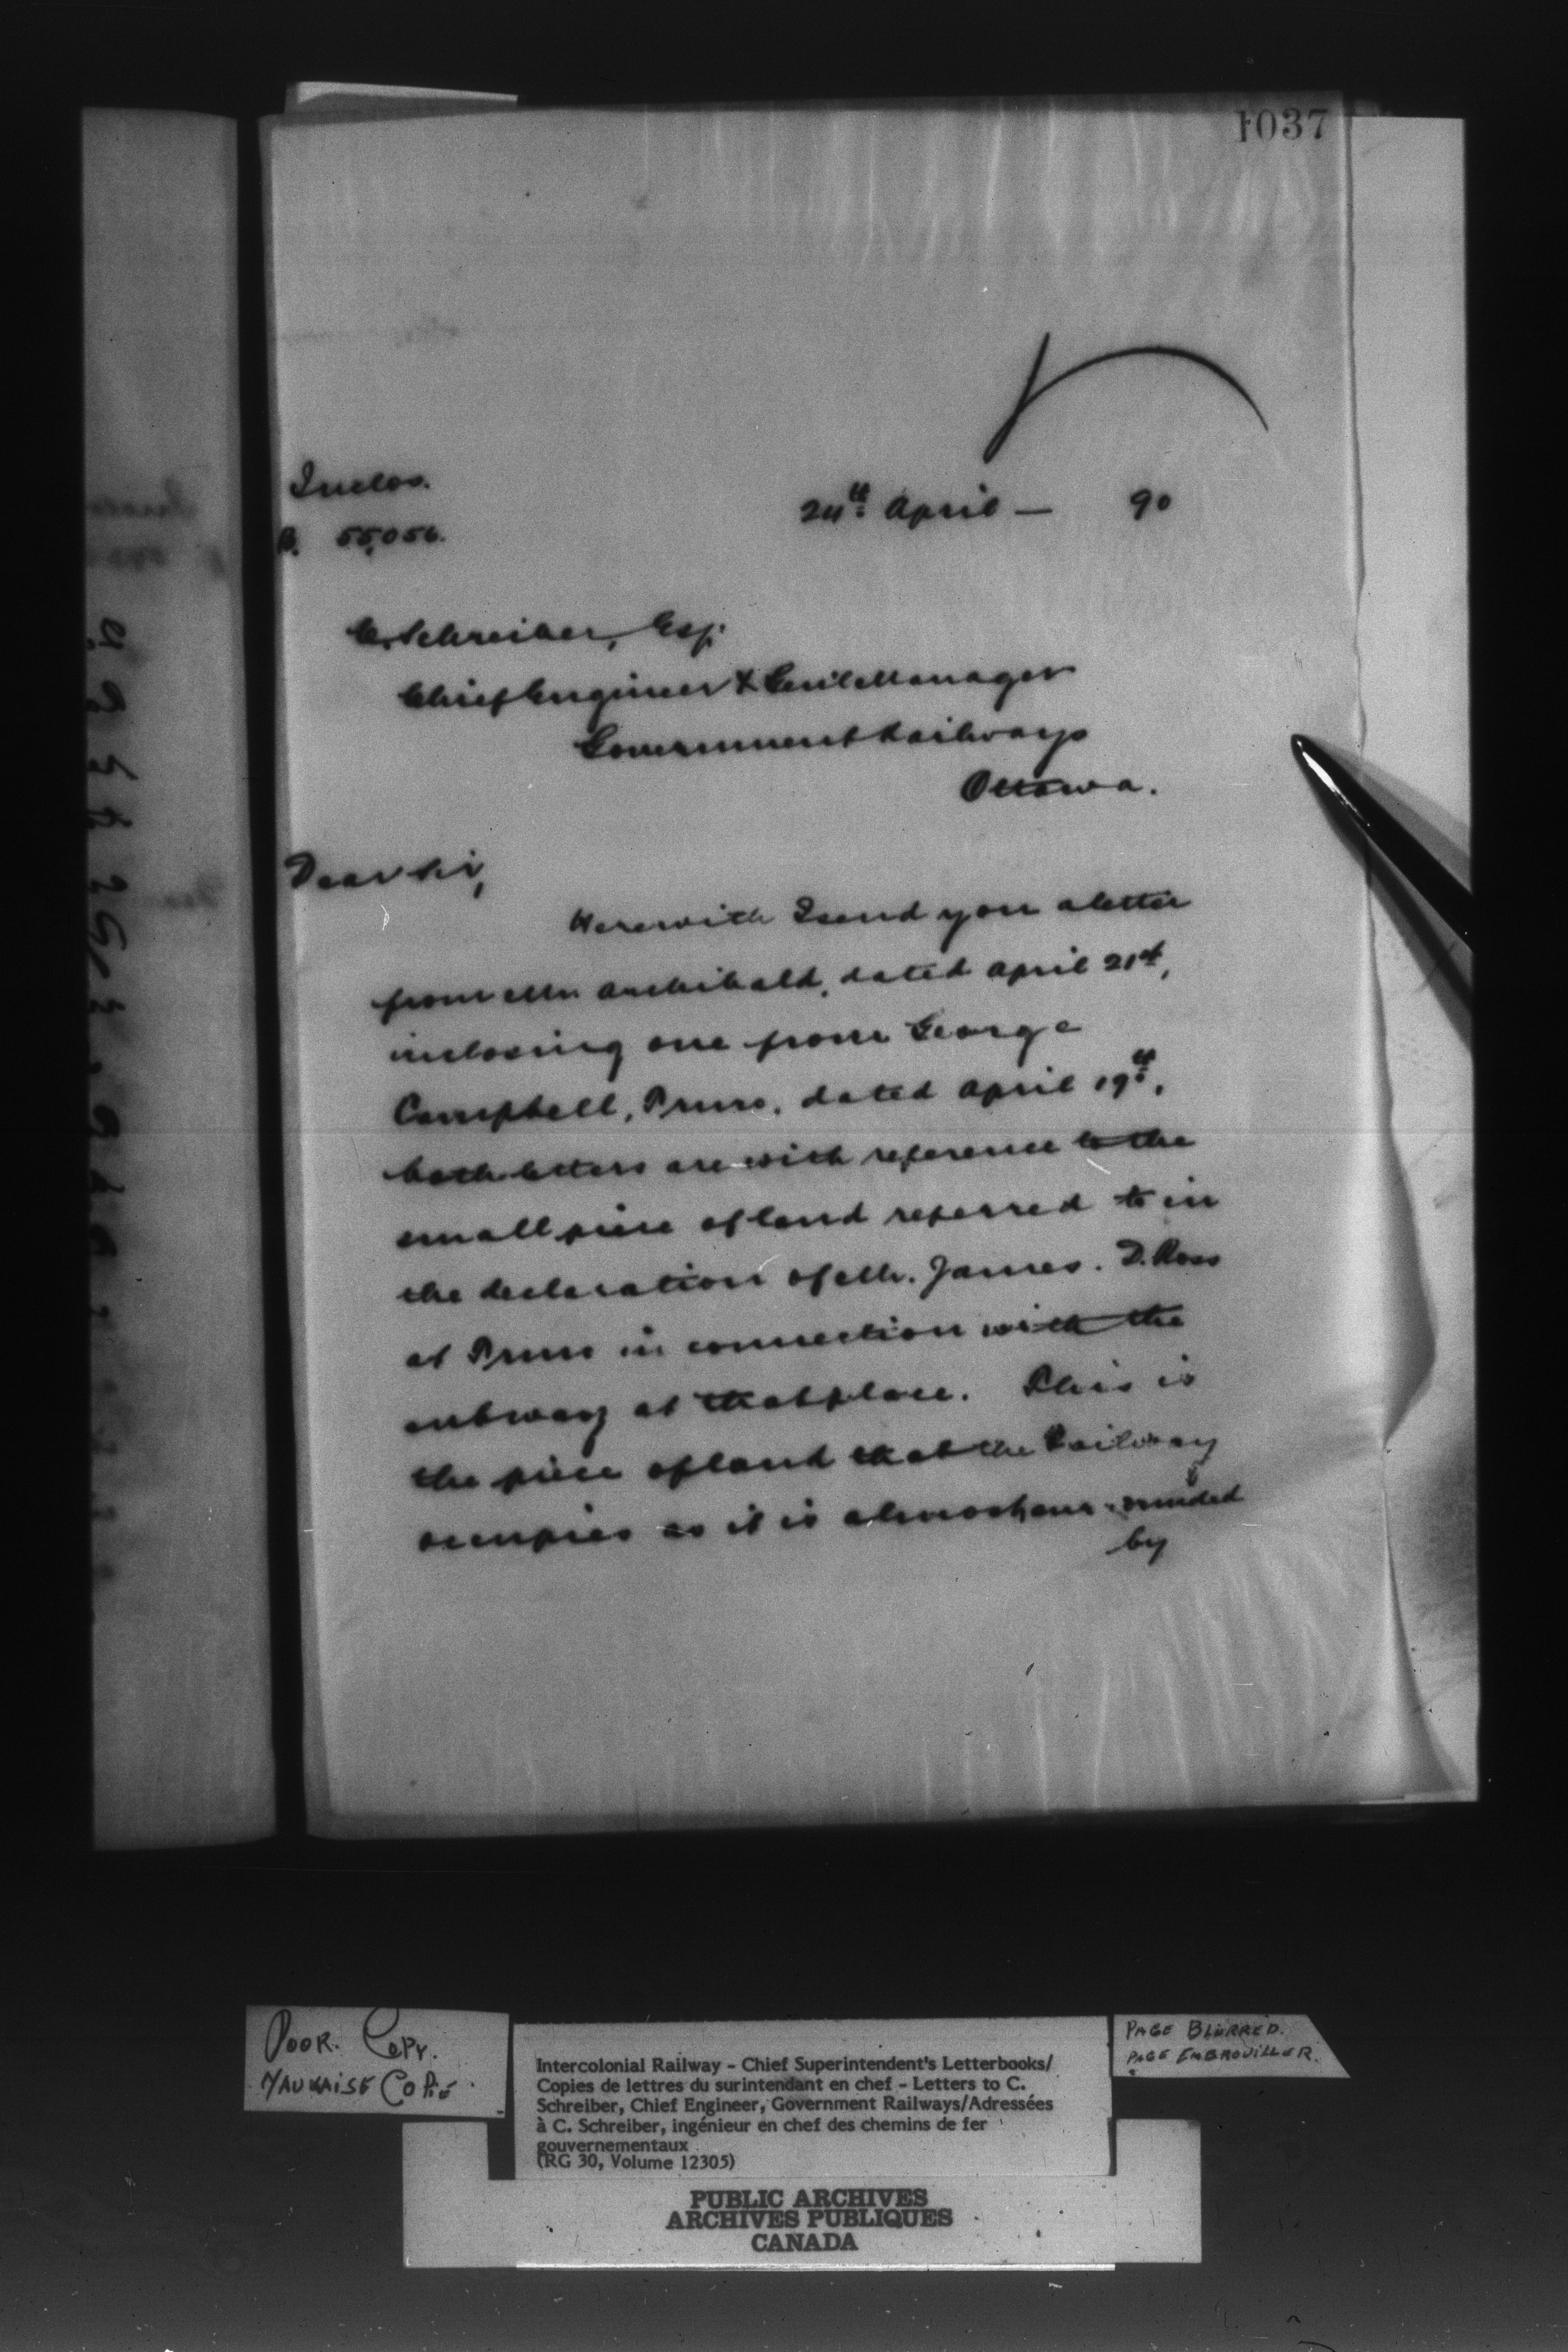 1037
Inclos.
B. 55,056.
24th April — 90
C. Schreiber, Esq.
Chief Engineer & Genl Manager
Government Railways
Ottawa.
Dear Sir,
Herewith I send you a letter
from Mr Archibald, dated April 21st,
inclosing one from George
Campbell, Truro, dated April 19th,
both letters are with reference to the
small piece of land referred to in
the declaration of Mr. James. D. Ross
at Truro in connection with the
subway at that place. This is
the piece of land that the Railway
occupies as it is almost surrounded
by
POOR. COPY.
MAUVAISE COPIE
Intercolonial Railway - Chief Superintendent's Letterbooks/
Copies de lettres du surintendant en chef - Letters to C.
Schreiber, Chief Engineer, Government Railways/Adressées
à C. Schreiber, ingénieur en chef des chemins de fer
gouvernementaux
(RG 30, Volume 12305)
PAGE BLURRED.
PAGE EMBROUILLER.
PUBLIC ARCHIVES
ARCHIVES PUBLIQUES
CANADA